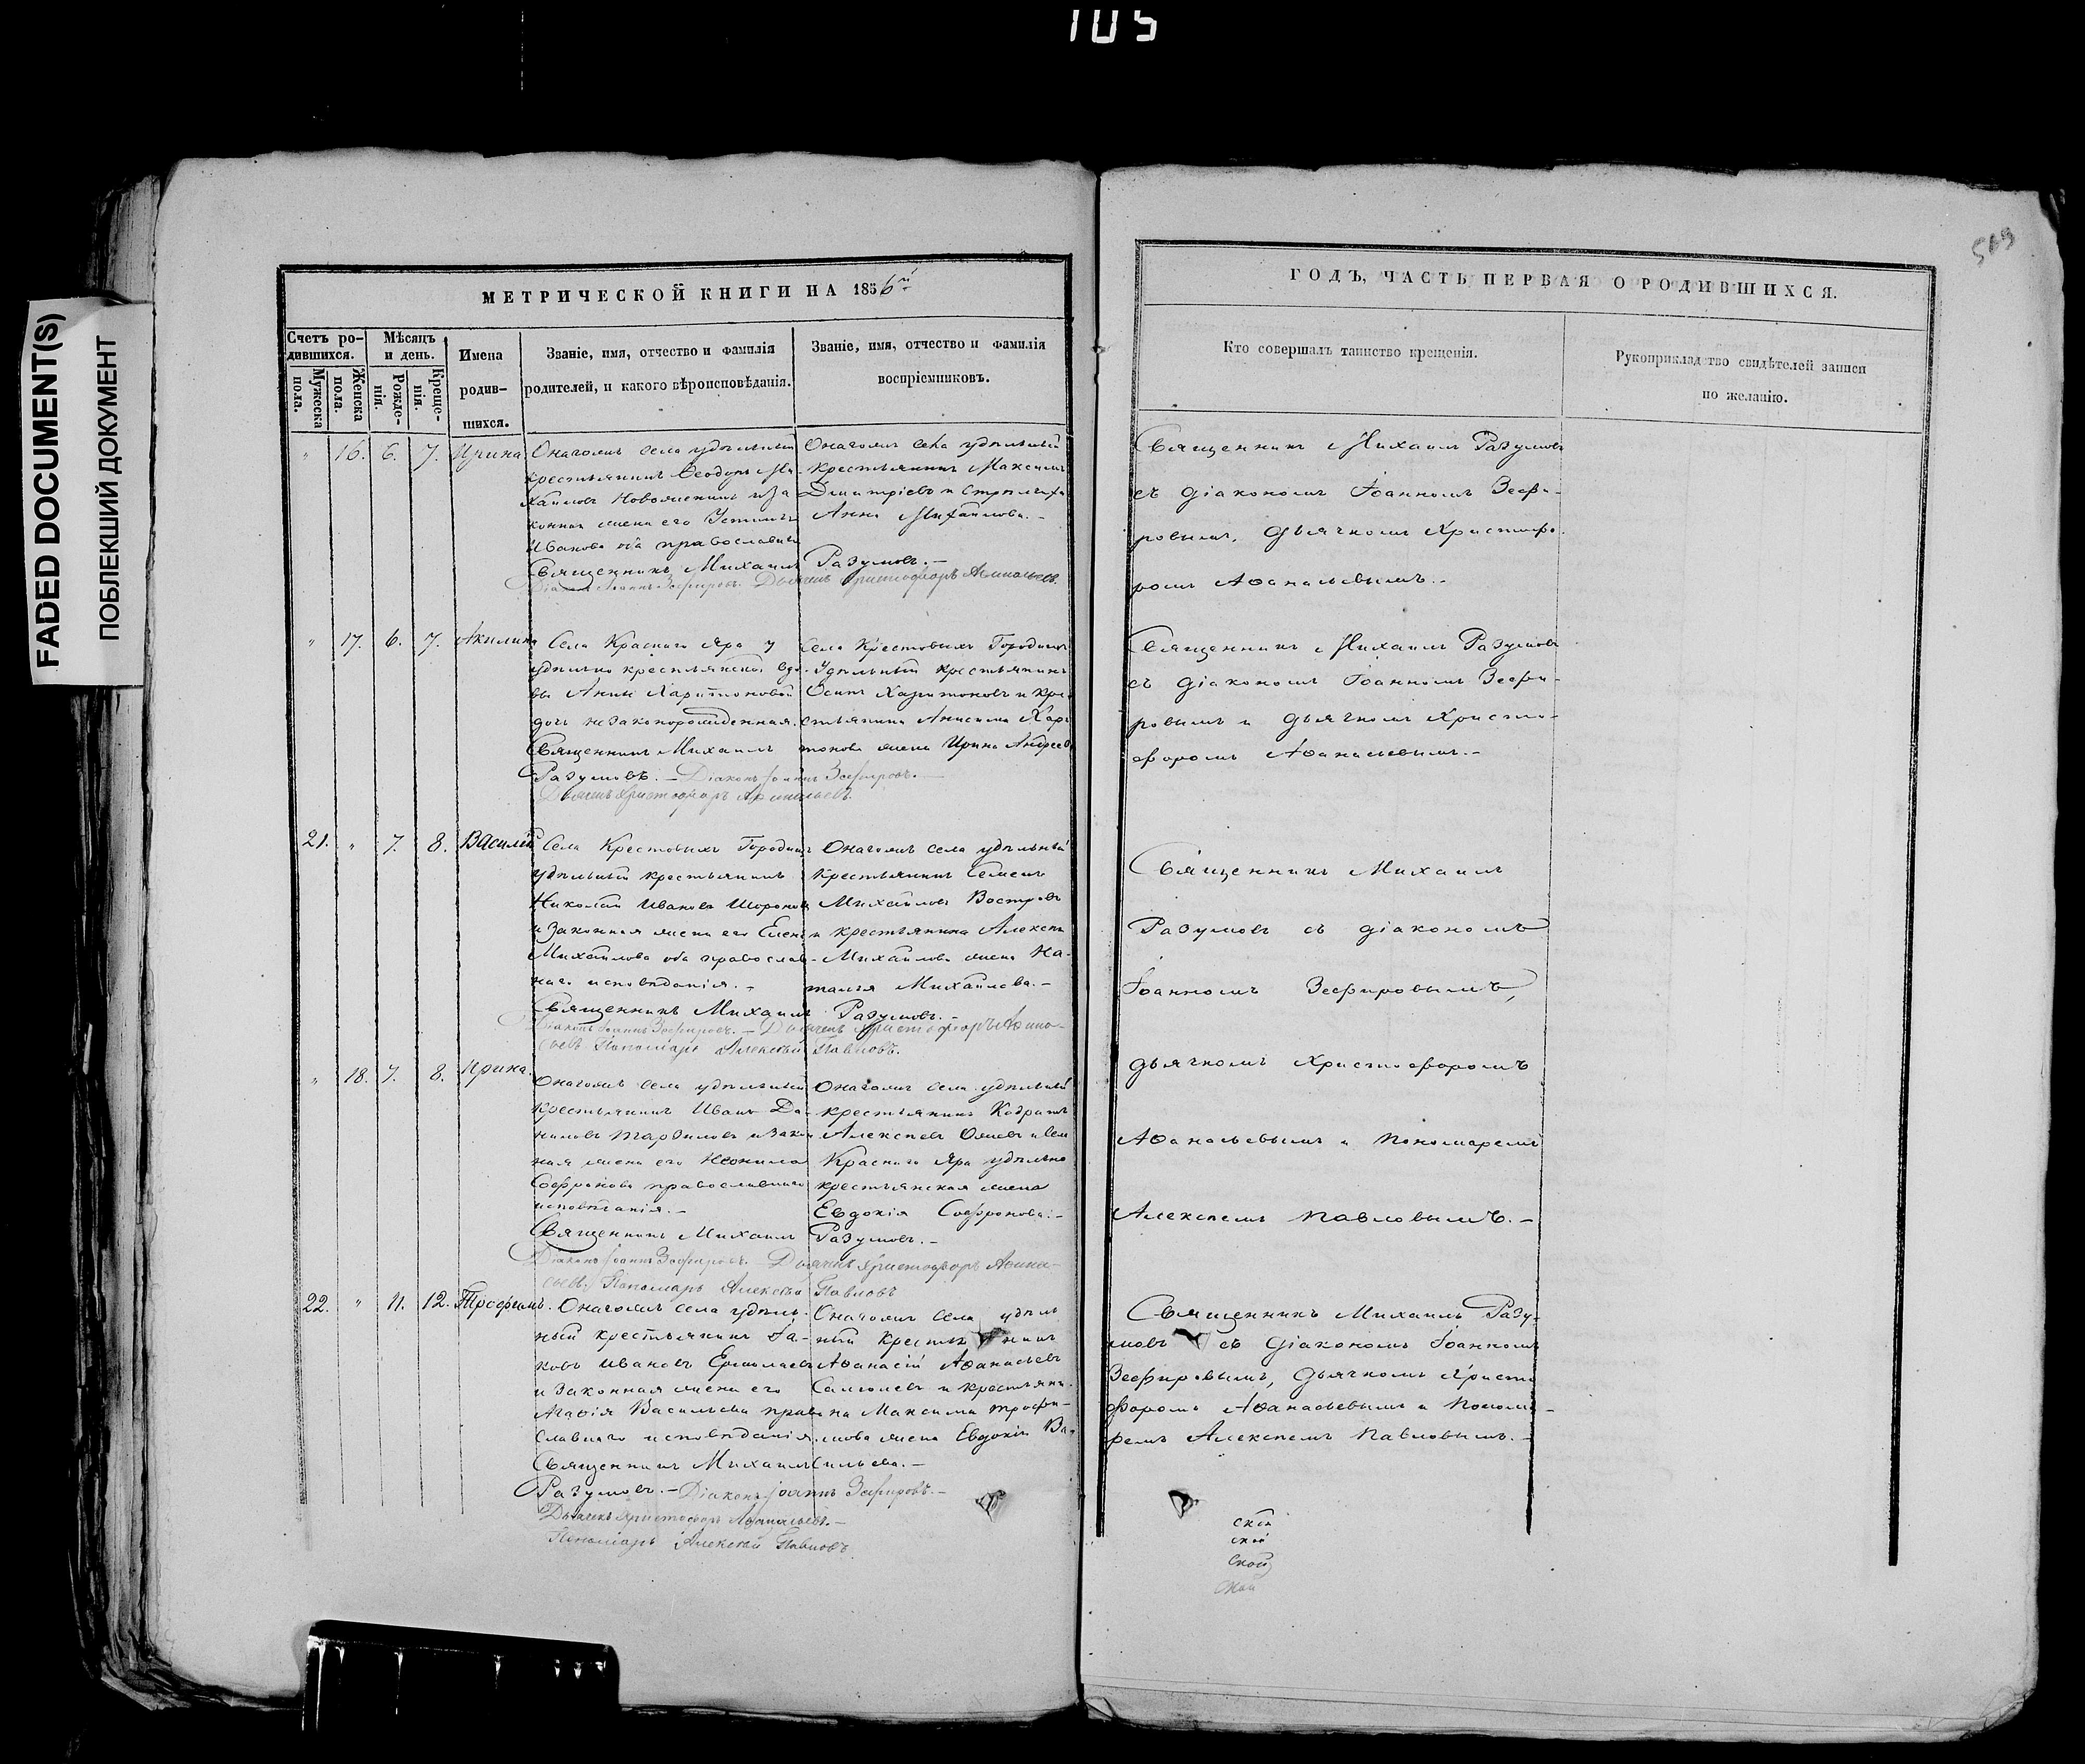 105
FADED DOCUMENT(S)
ПОБЛЕКШИЙ ДОКУМЕНТ
МЕТРИЧЕСКОЙ КНИГИ НА 1856й
Счетъ ро-
дившихся.
Мужеска пола.
Женска пола.
Мѣсяцъ
и день.
Рожде-
нія.
Креще-
нія.
Имена
родив-
шихся.
Званіе, имя, отчество и фамилія
родителей, и какого вѣроисповѣданія.
Званіе, имя, отчество и фамилія
воспріемниковъ.
" 16. 6. 7. Ирина
Оначомъ села удѣльный
крестьянинъ Ѳеодоръ Ми-
хайловъ и за-
конная жена его
Иванова оба православнаго
Священникъ Михаилъ Разумовъ.-
Діаконъ Іоаннъ Зефировъ. Дьячекъ Христофоръ Аѳанасьевъ.
Оначомъ села удѣльный
крестьянинъ Максимъ
Димитріевъ и
Анна Михайлова.-
" 17. 6. 7. Акилина
Села Краснаго Яра у
удѣльно крестьянской вдо-
вы Анны Харитоновой
дочь незаконорожденная.
Священникъ Михаилъ
Разумовъ.- Діаконъ Іоаннъ Зефировъ.-
Дьячекъ Христофоръ Аѳанасьевъ.
Села Крестовыхъ Городищъ
Удѣльный крестьянинъ
Осипъ Харитоновъ и кре-
стьянина Анисима Хари
тонова жена Ирина Андреева
21. " 7. 8. Василій
Села Крестовыхъ Городищъ
удѣльный крестьянинъ
Николай Ивановъ
и законная жена его Елена
Михайлова оба православ-
наго исповѣданія.-
Священникъ Михаилъ Разумовъ.-
Діаконъ Іоаннъ Зефировъ.- Дьячекъ Христофоръ Аѳана-
сьевъ Пономарь Алексѣй Павловъ.
Оначомъ села удѣльный
крестьянинъ Семенъ
Михайловъ Востровъ
и крестьянина Алексѣя
Михайлова жена На-
талья Михайлова.-
" 18. 7. 8. Ирина.
Оначомъ села удѣльный
крестьянинъ Иванъ Да-
ниловъ и закон
ная жена его Неонила
Софронова православнаго
исповѣданія.-
Священникъ Михаилъ Разумовъ.-
Діаконъ Іоаннъ Зефировъ.- Дьячекъ Христофоръ Аѳана-
сьевъ. Пономарь Алексѣй Павловъ
Оначомъ села удѣльный
крестьянинъ Кодратъ
Алексѣевъ и села
Краснаго Яра удѣльно
крестьянская жена
Евдокія Софронова.-
22. " 11. 12. Трофимъ.
Оначомъ села удѣль-
ный крестьянинъ Іа-
ковъ Ивановъ Ермолаевъ
и законная жена его
Агаѳія Васильева право
славнаго исповѣданія.
Священникъ Михаилъ
Разумовъ.- Діаконъ Іоаннъ Зефировъ.-
Дьячекъ Христофоръ Аѳанасьевъ.-
Пономарь Алексѣй Павловъ.
Оначомъ села удѣль
ный крестьянинъ
Аѳанасій Аѳанасьевъ
и крестьяни-
на Максима Трофи-
мова жена Евдокія Ва-
сильева.-
509
ГОДЪ, ЧАСТЬ ПЕРВАЯ О РОДИВШИХСЯ.
Кто совершалъ таинство крещенія.
Рукоприкладство свидѣтелей записи
по желанію.
Священникъ Михаилъ Разумовъ
съ діакономъ Іоанномъ Зефи-
ровымъ, дьячкомъ Христофо-
ромъ Аѳанасьевымъ.-
Священникъ Михаилъ Разумовъ
съ діакономъ Іоанномъ Зефи-
ровымъ и дьячкомъ Христо-
форомъ Аѳанасьевымъ.-
Священникъ Михаилъ
Разумовъ съ діакономъ
Іоанномъ Зефировымъ,
дьячкомъ Христофоромъ
Аѳанасьевымъ и пономаремъ
Алексѣемъ Павловымъ.-
Священникъ Михаилъ Разу-
мовъ съ діакономъ Іоанномъ
Зефировымъ, дьячкомъ Христо
форомъ Аѳанасьевымъ и Понома-
ремъ Алексѣемъ Павловымъ.-
ской